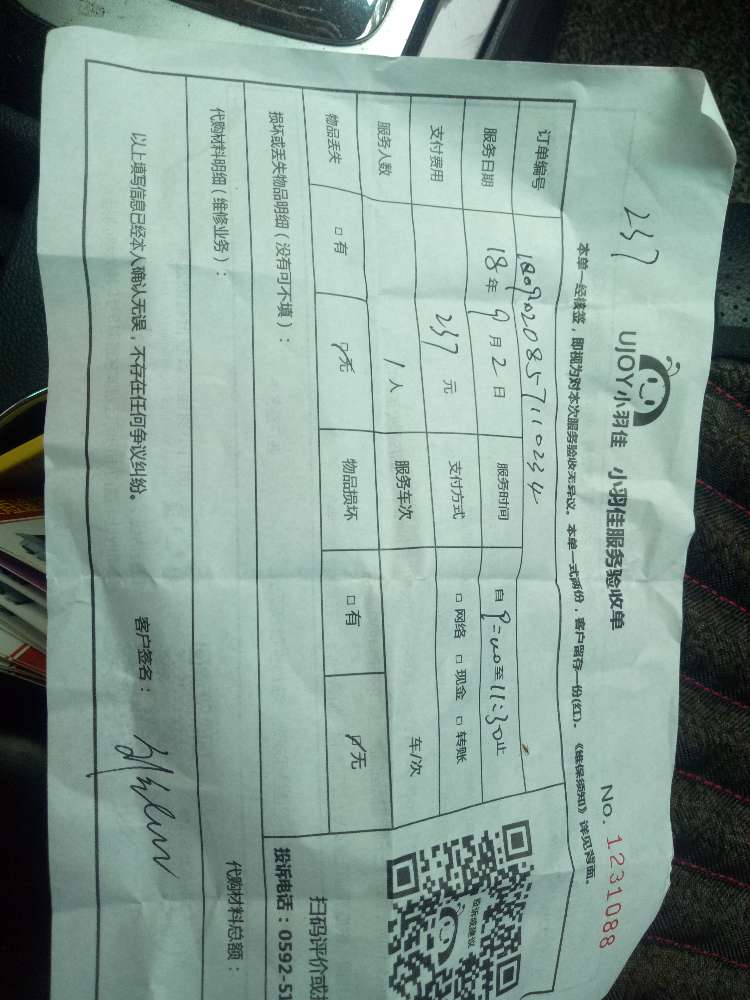 237
UJOY小羽佳 小羽佳服务验收单
No. 1231088
本单一经核签，即视为对本次服务验收无异议。本单一式两份，客户留存一份(红)。《维保须知》详见背面。
订单编号 1809020857110234
服务日期 18年9月2日 服务时间 自9:00至11:30止
支付费用 237元 支付方式 □网络 □现金 □转账
服务人数 1人 服务车次 车/次
物品丢失 □有 □无 物品损坏 □有 □无
损坏或丢失物品明细（没有可不填）：
代购材料明细（维修业务）：
代购材料总额：
以上填写信息已经本人确认无误，不存在任何争议纠纷。 客户签名：
扫码评价或
投诉电话：0592-51